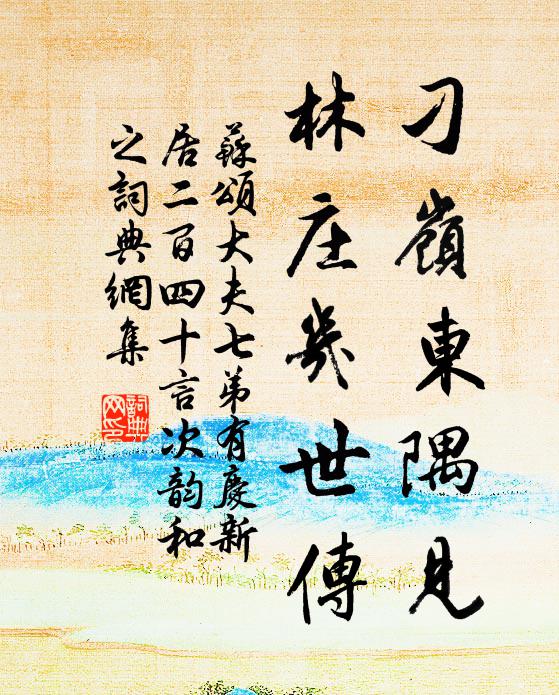 刁嶺東隅見
林庄幾世傳
蘇頌大夫七弟有慶新
居二百四十言次韵和
之詞典網集
詞典
网印